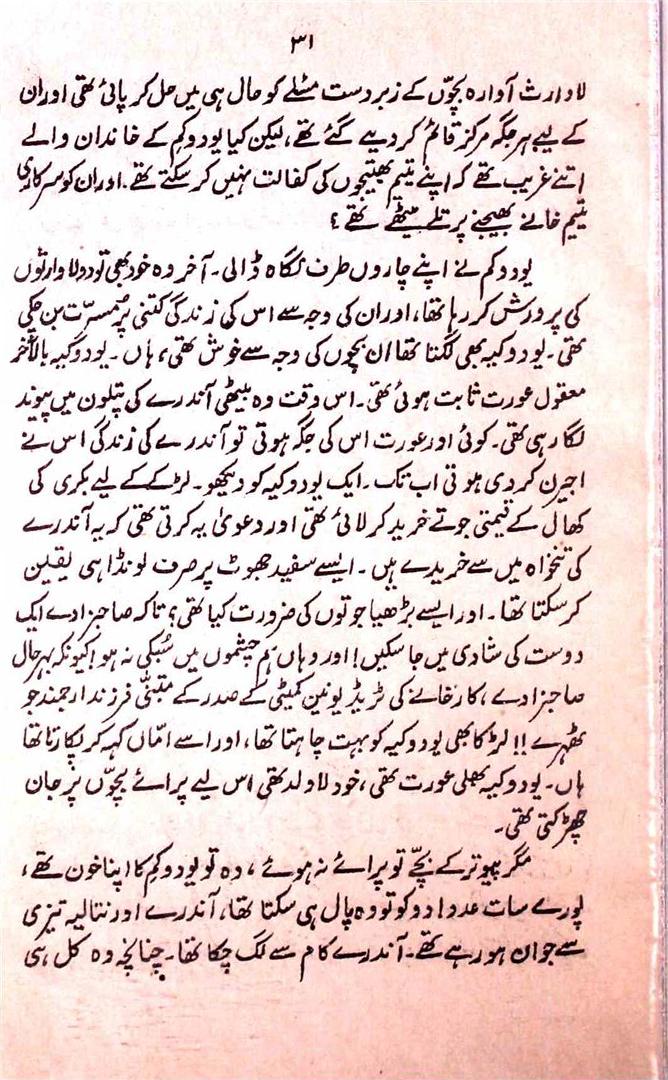 ۳۱
لاوارث آوارہ بچّوں کے زبردست مسئلے کو حال ہی میں حل کر پائی تھی اور ان
کے لیے ہر جگہ مرکز قائم کر دیے گئے تھے، لیکن کیا یودوکم کے خاندان والے
اتنے غریب تھے کہ اپنے یتیم بھتیجوں کی کفالت نہیں کر سکتے تھے۔ اور ان کو سرکاری
یتیم خانے بھیجنے پر تلے بیٹھے تھے؟
یودوکم نے اپنے چاروں طرف نگاہ ڈالی۔ آخر وہ خود بھی تو دو لاوارثوں
کی پرورش کر رہا تھا، اور ان کی وجہ سے اس کی زندگی کتنی پُرمسرّت بن چکی
تھی۔ یودوکیہ بھی لگتا تھا ان بچّوں کی وجہ سے خوش تھی، ہاں۔ یودوکیہ بالآخر
معقول عورت ثابت ہوئی تھی۔ اس وقت وہ بیٹھی آندرے کی پتلون میں پیوند
لگا رہی تھی۔ کوئی اور عورت اس کی جگہ ہوتی تو آندرے کی زندگی اس نے
اجیرن کر دی ہوتی اب تک۔ ایک یودوکیہ کو دیکھو۔ لڑکے کے لیے بکری کی
کھال کے قیمتی جوتے خرید کر لائی تھی اور دعویٰ یہ کرتی تھی کہ یہ آندرے
کی تنخواہ میں سے خریدے ہیں۔ ایسے سفید جھوٹ پر صرف لونڈا ہی یقین
کر سکتا تھا۔ اور ایسے بڑھیا جوتوں کی ضرورت کیا تھی؟ تاکہ صاحبزادے ایک
دوست کی شادی میں جا سکیں! اور وہاں ہم چشموں میں سُبکی نہ ہو! کیونکہ بہرحال
صاحبزادے، کارخانے کی ٹریڈ یونین کمیٹی کے صدر کے متبنّیٰ فرزند ارجمند جو
ٹھہرے!! لڑکا بھی یودوکیہ کو بہت چاہتا تھا، اور اسے امّاں کہہ کر پکارتا تھا
ہاں۔ یودوکیہ بھلی عورت تھی، خود لاولد تھی اس لیے پرائے بچّوں پر جان
چھڑکتی تھی۔
مگر پیوتر کے بچّے تو پرائے نہ ہوئے، وہ تو یودوکم کا اپنا خون تھے،
پورے سات عدد! دو کو تو وہ پال ہی سکتا تھا، آندرے اور نتالیہ تیزی
سے جوان ہو رہے تھے۔ آندرے کام سے لگ چکا تھا۔ چنانچہ وہ کل ہی